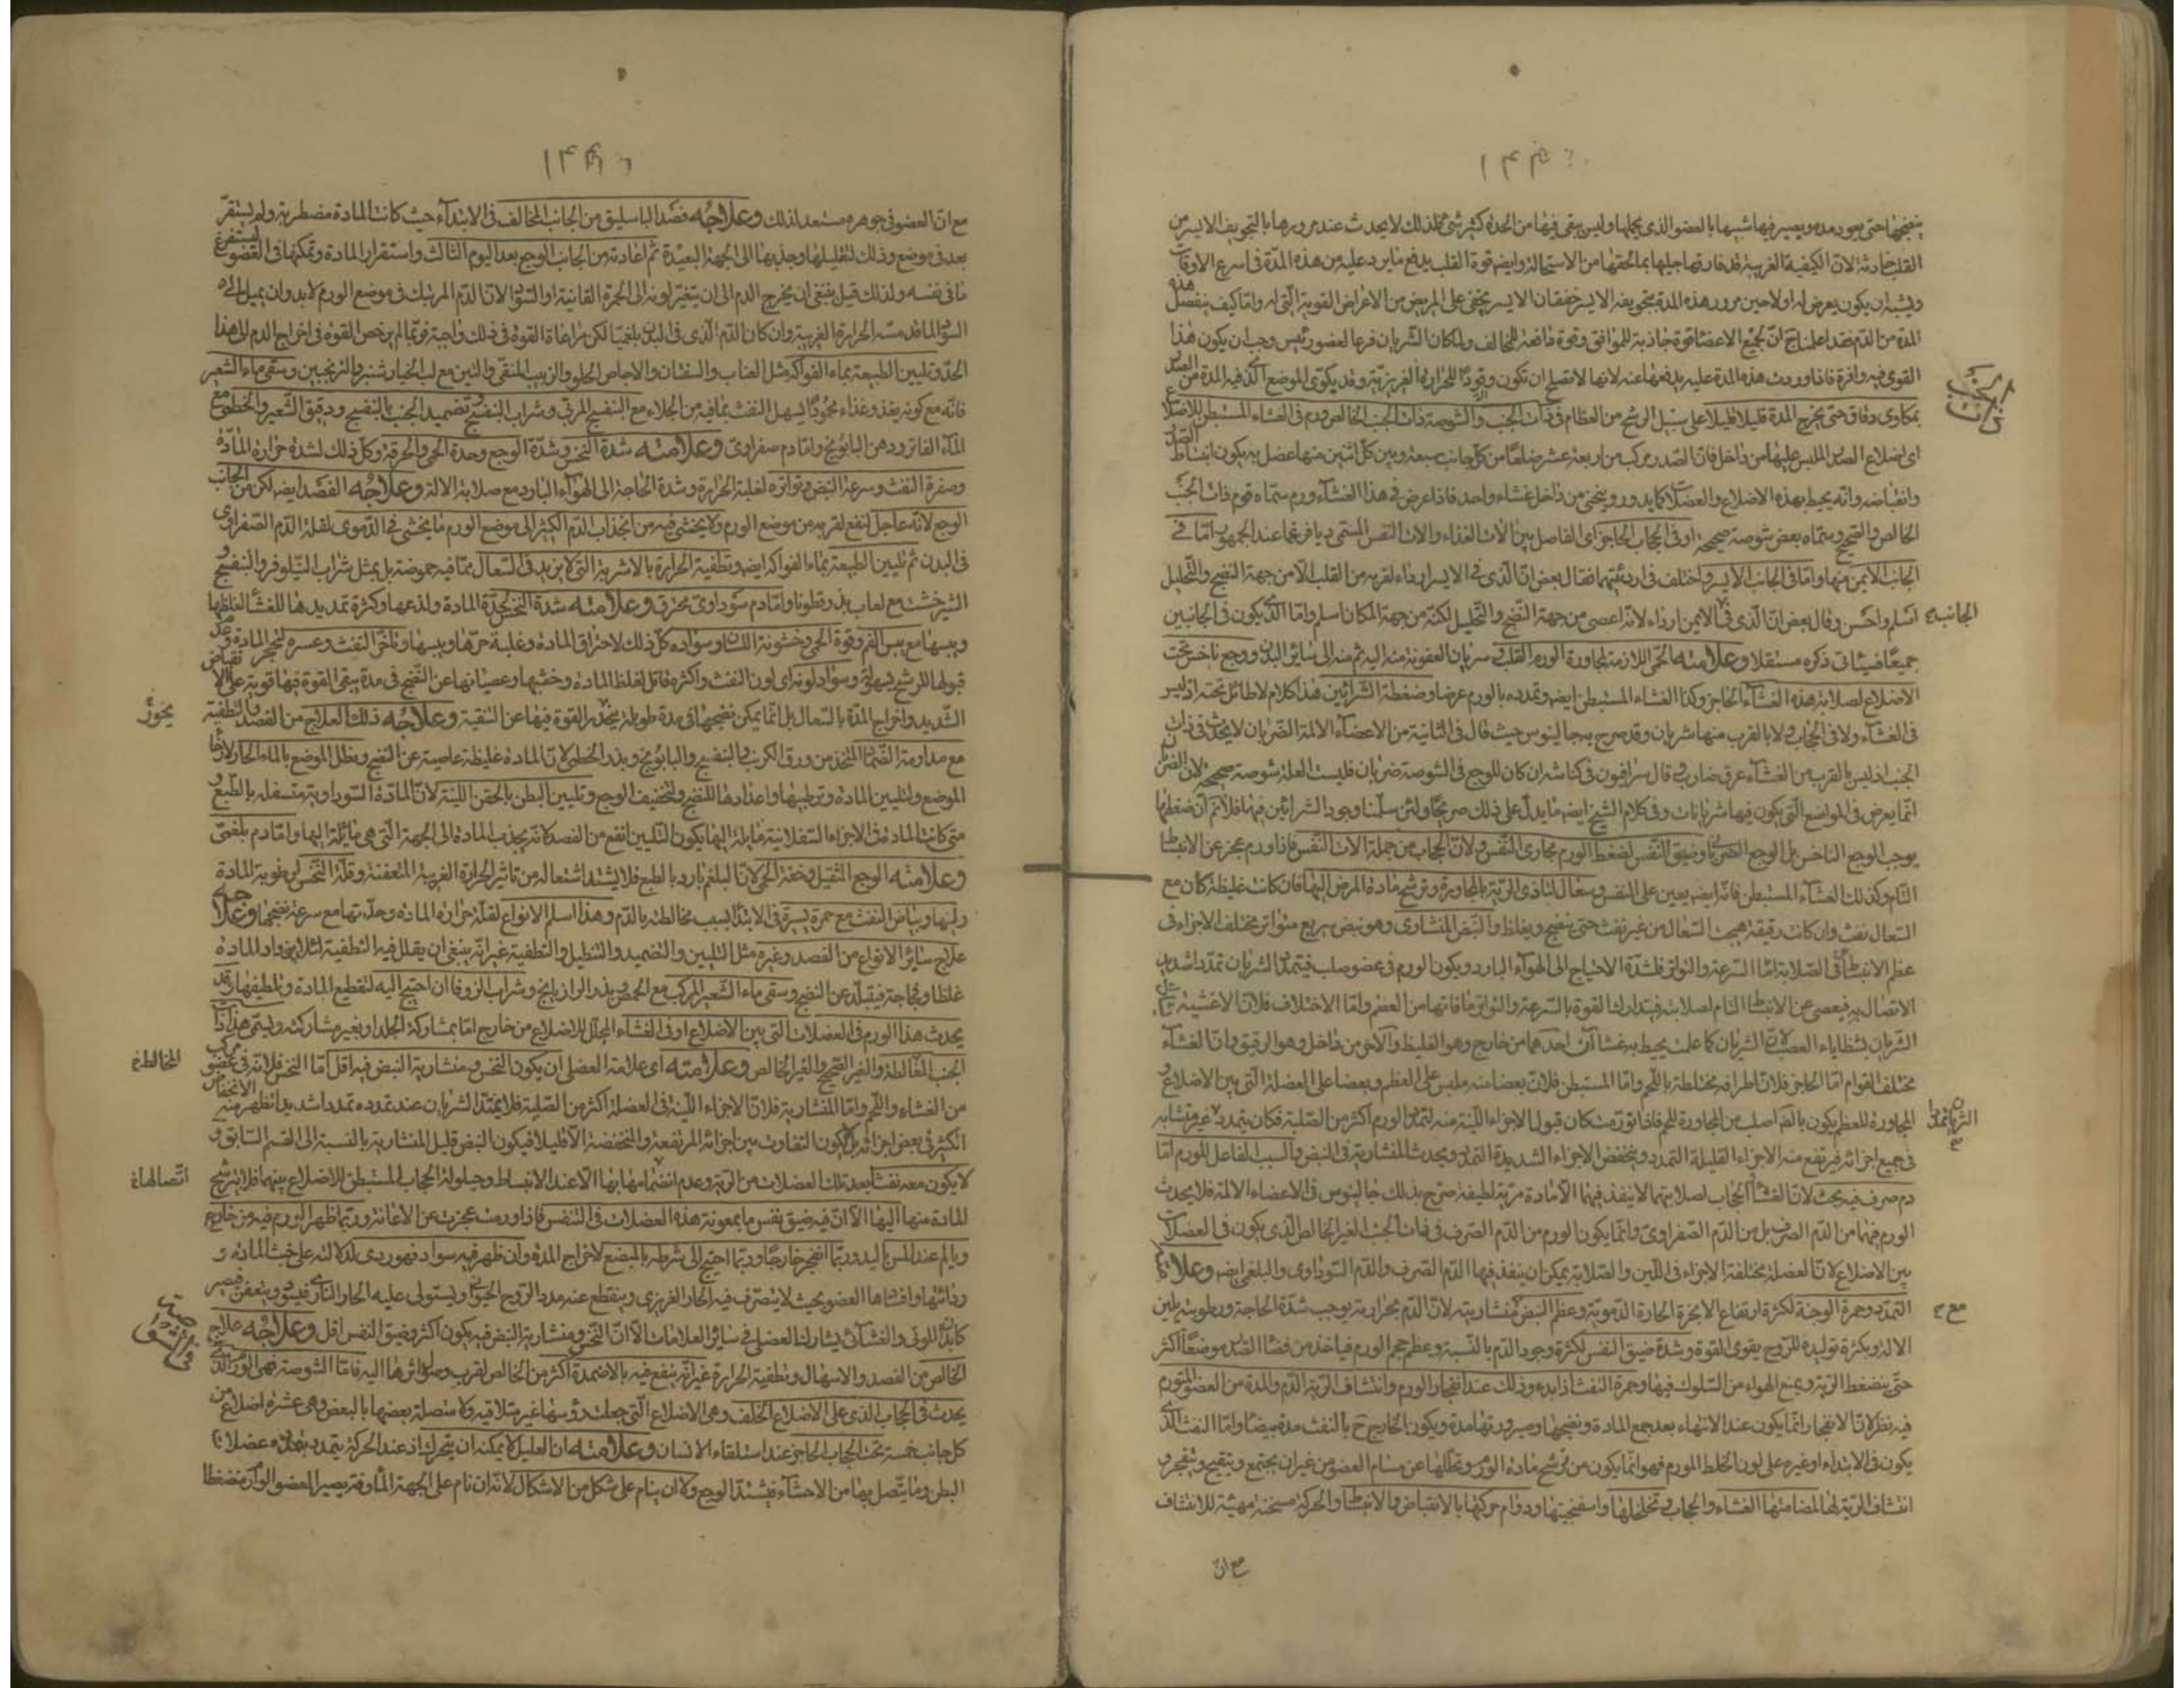 ينضجها حتى يعود مده ويصير فيها شبيها بالعضو الذى يحملها وليس يبقى فيها من الحدة كثير شئ فلذلك لا يحدث عند مرورها بالتجويف الايسر من
القلب حادثة لان الكيفية الغريبة قد فارقتها جلها بما لحقها من الاستحالة وايضه قوة القلب يدفع ما يرد عليه من هذه المدة فى اسرع الاوقات
ويشبه ان يكون يعرض له اولا حين مرور هذه المدة بتجويفه الايسر خفقان الا يسر يخفى على المريض من الاعراض القوية التى له واما كيف ينفصل هذه
المدة من الدم فقد اعلمناج ان لجميع الاعضا قوة جاذبة للموافق وقوة دافعة للمخالف ولما كان الشريان فرعا لعضو رئيس وجب ان يكون هذا
القوى فيه وافرة فاذا وردت هذه المدة عليه يدفعها عنه لانها لا تصلح ان تكون وقودا للحرارة الغريزية وقد يكوى الموضع الذى فيه المدة من الصدر
بمكاوى دقاق حتى يخرج المدة قليلا قليلا على سبيل الرشح من العظام فى ذات الجنب والشوصة ذات الجنب الخالص ورم فى الغشاء المستبطن للاضلاع
اى اضلاع الصدر الملبس عليها من داخل فان الصدر مركب من اربعة عشر ضلعا من كل جانب سبعة وبين كل اثنين منها عضل به يكون انبساط الصدر
وانقباضه وانه يحيط بهذه الاضلاع والعضلات كما يدور وينحنى من داخل غشاء واحد فاذا عرض فى هذا الغشاء ورم سماه قوم ذات الجنب
الخالص والصحيح وسماه بعض شوصة صحيحة او فى الحجاب الحاجز اى الفاصل بين الات الغذاء والات النفس المسمى ديافرغما عند الجمهور اما فى
الجانب الايمن منها واما فى الجانب الايسر واختلف فى اردئيتهما فقال بعض ان الذى فى الايسر ارداء لقربه من القلب الا من جهة النضج والتحليل
الجانب اسلم واحسن وقال بعض ان الذى فى الايمن ارداء لانه اعصى من جهة النضج والتحليل لكنه من جهة المكان اسلم واما الذى يكون فى الجانبين
جميعا فسيأتى ذكره مستقلا وعلامته الحمى اللازمة لمجاورة الورم القلب سريان العفونة منه اليه ثم منه الى سائر البدن ووجع ناخس تحت
الاضلاع لصلابة هذه الغشاء الحاجز وكذا الغشاء المستبطن ايضه وتمدده بالورم عرضا وضغطة الشرائين هذا كلام لا طائل تحته اذ ليس
فى الغشاء ولا فى الحجاب ولا بالقرب منها شريان وقد صرح به جالينوس حيث قال فى الثانية من الاعضاء الالمة الضربان لا يحدث فى ذات
الجنب اذ ليس بالقرب من الغشاء عرق ضارب وقال سرافيون فى كناشه ان كان للوجع فى الشوصة ضربان فليست العلة شوصة صحيحة لان الضربان
انما يعرض فى المواضع التى يكون فيها شريانات وفى كلام الشيخ ايضه ما يدل على ذلك صريحا ولئن سلمنا وجود الشرائين فيها فلا نم ان ضغطها
يوجب الوجع الناخس بل الوجع الضربانى وضيق النفس لضغط الورم مجارى النفس ولان الحجاب من جملة الات النفس فاذا ورم عجز عن الانبساط
التام وكذلك الغشاء المستبطن فانه ايضه يعين على النفس وسعال لتأذى الرية بالمجاورة وترشح مادة المرض اليها فان كانت غليظة كان مع
السعال نفث وان كانت رقيقة هيجت السعال من غير نفث حتى ينضج ويغلظ والنبض المنشارى وهو نبض سريع متواتر مختلف الاجزاء فى
عظم الانبساط فى الصلابة اما السرعة والتواتر فلشدة الاحتياج الى الهواء البارد ويكون الورم فى عضو صلب فيتمدد الشريان تمددا شديد
الاتصال به فيعصى عن الانبساط التام لصلابته فيتدارك القوة بالسرعة والتواتر ما فاتها من العظم واما الاختلاف فلان الاغشية
الشريان بشظايا العصب لان الشريان كما علمت يحيط به غشاآن احدهما من خارج وهو الغليظ والآخر من داخل وهو الرقيق وان الغشاء
مختلف القوام اما الحاجز فلان اطرافه مختلطة باللحم واما المستبطن فلان بعضا منه ملبس على العظم وبعضا على العضلة التى بين الاضلاع و
المجاورة للعظم يكون بالضم اصلب من المجاورة للحم فاذا تورمت كان قبول الاجزاء اللينة منه لتمدد الورم اكثر من الصلبة فكان يتمدد غير متشابه
فى جميع اجزائه فيرتفع منه الاجزاء القليلة التمدد وينخفض الاجزاء الشديدة التمدد ويحدث المنشارية فى النبض والسبب الفاعل للورم اما
دم صرف فيه بحث لان الغشاء الحجاب لصلابتهما لا ينفذ فيهما الا مادة مرية لطيفة صرح بذلك جالينوس فى الاعضاء الالمة فلا يحدث
الورم فيها من الدم الصرف بل من الدم الصفراوى وانما يكون الورم من الدم الصرف فى ذات الجنب الغير الخالص الذى يكون فى العضلات
بين الاضلاع لان العضلة مختلفة الاجزاء فى اللين والصلابة يمكن ان ينفذ فيها الدم الصرف والدم السوداوى والبلغمى ايضه وعلامته
التمدد وحمرة الوجنة لكثرة ارتفاع الابخرة الحارة الدموية وعظم النبض منشاريته لان الدم بحرارته يوجب شدة الحاجة ورطوبته يلين
الالة وبكثرة توليده للروح يقوى القوة وشدة ضيق النفس لكثرة وجود الدم بالنسبة وعظم حجم الورم فياخذ من فضاء الصدر موضعا اكثر
حتى ينضغط الرية ويمنع الهواء من السلوك فيها وحمرة النفث اذا بدء وذلك عند انفجار الورم وانتشاف الرية الدم والمدة من العضو المتورم
فيه نظر لان الانفجار انما يكون عند الانتهاء بعد جمع المادة ونضجها وصيرورتها مدة ويكون الخارج ح بالنفث مدة بيضا واما النفث الذى
يكون فى الابتداء او غيره على لون الخلط المورم فهو انما يكون من ترشح مادة الورم وتحللها عن مسام العضو من غير ان يجتمع ويتقيح وينفجر و
انتشاف الرية لها لمضامتها الغشاء والحجاب وتخلخلها واسفنجيتها ودوام حركتها بالانقباض والانبساط والحركة مسخنة مهيئة للانتشاف
مع ان
مع ان العضو فى جوهره مستعد لذلك وعلاجه فصد الباسليق من الجانب المخالف فى الابتداء حيث كانت المادة مضطربة ولم يستقر
بعد فى موضع وذلك لتقليلها وجذبها الى الجهة البعيدة ثم اعادته من الجانب الوجع بعد اليوم الثالث واستقرار المادة وتمكنها فى العضو ليستفرغ
ما فى نفسه ولذلك قيل ينبغى ان يخرج الدم الى ان يتغير لونه الى الحمرة القانية او السواد لان الدم المرتبك فى موضع الورم لا بد وان يميل الى
السواد لما قد مسته الحرارة الغريبة وان كان الدم الذى فى البدن بلغميا لكن مراعاة القوة فى ذلك واجبة فربما لم يرخص القوة فى اخراج الدم الى هذا
الحد وتليين الطبيعة بماء الفواكه مثل العناب والسپستان والاجاص الحلو والزبيب المنقى والتين مع لب الخيار شنبر والترنجبين وسقى ماء الشعير
فانه مع كونه يغذو غذاء محمودا يسهل النفث بما فيه من الجلاء مع البنفسج المربى وشراب البنفسج وتضميد الجنب بالبنفسج ودقيق الشعير والخطمى مع
الماء الفاتر ودهن البابونج واما دم صفراوى وعلامته شدة النخس وشدة الوجع وحدة الحمى والحرقة وكل ذلك لشدة حرارة المادة
وصفرة النفث وسرعة النبض وتواتره لغلبة الحرارة وشدة الحاجة الى الهواء البارد مع صلابة الالة وعلاجه الفصد ايضه لكن من الجانب
الوجع لانه عاجل انفع لقربه من موضع الورم ولا يخشى فيه من انجذاب الدم الكثير الى موضع الورم ما يخشى فى الدموى لقلة الدم الصفراوى
فى البدن ثم تليين الطبيعة بماء الفواكه ايضه وتطفية الحرارة بالاشربة التى لا يزيد فى السعال مما فيه حموضة بل يمثل شراب النيلوفر والبنفسج و
الشيرخشت مع لعاب بذر قطونا واما دم سوداوى محترق وعلامته شدة النخس لحدة المادة ولذعها وكثرة تمديدها للغشاء لغلظها
ويبسها مع يبس الفم وقوة الحمى وخشونة اللسان وسواده كل ذلك لاحتراق المادة وغلبة حرها ويبسها وتأخر النفث وعسره لتحجر المادة وعدم
قبولها للرشح بسهولة وسواد لونه اى لون النفث واكثره قاتل لغلظ المادة وخبثها وعصيانها عن النضج فى مدة يبقى القوة فيها قوية على انقباض
الاضلاع الشديد واخراج المدة بالسعال بل انما يمكن نضجها فى مدة طويلة يخور القوة فيها عن التنقية وعلاجه ذلك العلاج من الفصد والتطفية
مع مداومة الضماد المتخذ من ورق الكرنب بالبنفسج والبابونج وبذر الخطمى لان المادة غليظة عاصية عن النضج ونطل الموضع بالماء الحار لارخاء
الموضع ولتليين المادة وترطيبها واعدادها للنضج ولتخفيف الوجع وتليين البطن بالحقن اللينة لان المادة السوداوية متسفلة بالطبع و
متى كانت المادة فى الاجزاء السفلانية مايلة اليها يكون التليين انفع من الفصد كانه يجذب المادة الى الجهة التى هى مائلة اليها واما دم بلغمى
وعلامته الوجع الثقيل وخفة الحمى لان البلغم بارد بالطبع فلا يشتد اشتعاله من تاثير الحرارة الغريبة المتعفنة وقلة النخس لرطوبة المادة
ولينها وبياض النفث مع حمرة يسيرة فى الابتدا بسبب مخالطته بالدم وهذا اسلم الانواع لقلة حرارة المادة وحدتها مع سرعة نضجها وعلاجه
علاج سائر الانواع من الفصد وغيره مثل التليين والتضميد والتنطيل والتطفية غير انه ينبغى ان يقلل فيه التطفية لئلا يزداد المادة
غلظا وفجاجة فيتبلد عن النضج وسقى ماء الشعير المركب مع الحمص وبذر الرازيانج وشراب الزوفا ان احتيج اليه لتقطيع المادة وتلطيفها وقد
يحدث هذا الورم فى العضلات التى بين الاضلاع او فى الغشاء المجلل للاضلاع من خارج اما بمشاركة الجلد او بغير مشاركته ويسمى هذا ذات
الجنب المغالطة والغير الصحيح والغير الخالص وعلامته اى علامة العضلى ان يكون النخس ومنشارية النبض فيه اقل اما النخس فلانه فى عضو مركب
من الغشاء واللحم واما المنشارية فلان الاجزاء اللينة فى العضلة اكثر من الصلبة فلا يتمدد الشريان عند تمدده تمددا شديدا يظهر منه الانخفاض
الكثير فى بعض اجزائه بل يكون التفاوت بين اجزائه المرتفعة والمنخفضة الا قليلا فيكون النبض قليل المنشارية بالنسبة الى القسم السابق و
لا يكون معه نفث لبعد تلك العضلات من الرية وعدم انضمامها بها الا عند الانبساط وحيلولة الحجاب المستبطن للاضلاع بينهما فلا يترشح
المادة منها اليها الا ان فيه ضيق نفس ما بمعونة هذه العضلات فى التنفس فاذا ورمت عجزت عن الاعانة وربما ظهر الورم فيه من خارج
ويالم عند اللمس باليد وربما انفجر خارجا وربما احتيج الى شرطه بالمبضع لاخراج المدة وان ظهر فيه سواد فهو ردى لدلالته على خبث المادة و
ردائتها وافسادها العضو بحيث لا يتصرف فيه الحار الغريزى وينقطع عنه مدد الروح الحيوانى ويستولى عليه الحار النارى فيسود ويتعفن فيصير
كابدان الموتى والغشائى يشارك العضلى فى سائر العلامات الا ان النخس ومنشارية النبض فيه يكون اكثر وضيق النفس اقل وعلاجه علاج
الخالص من الفصد والاسهال وتطفية الحرارة غير انه ينفع فيه بالاضمدة اكثر من الخالص لقرب وصول اثرها اليه فاما الشوصة فهى الورم الذى
يحدث فى الحجاب الذى على الاضلاع الخلف وهى الاضلاع التى جعلت رؤسها غير متلاقية ولا متصلة بعضها بالبعض وهى عشرة اضلاع من
كل جانب خمسة تحت الحجاب الحاجز عند استلقاء الانسان وعلامته ان العليل لا يمكنه ان يتحرك اذ عند الحركة يتمدد بتمدده عضلات
البطن وما يتصل بها من الاحشاء فيشتد الوجع ولا ان ينام على شكل من الاشكال لانه ان نام على الجهة المأوفة يصير العضو الوارم منضغطا